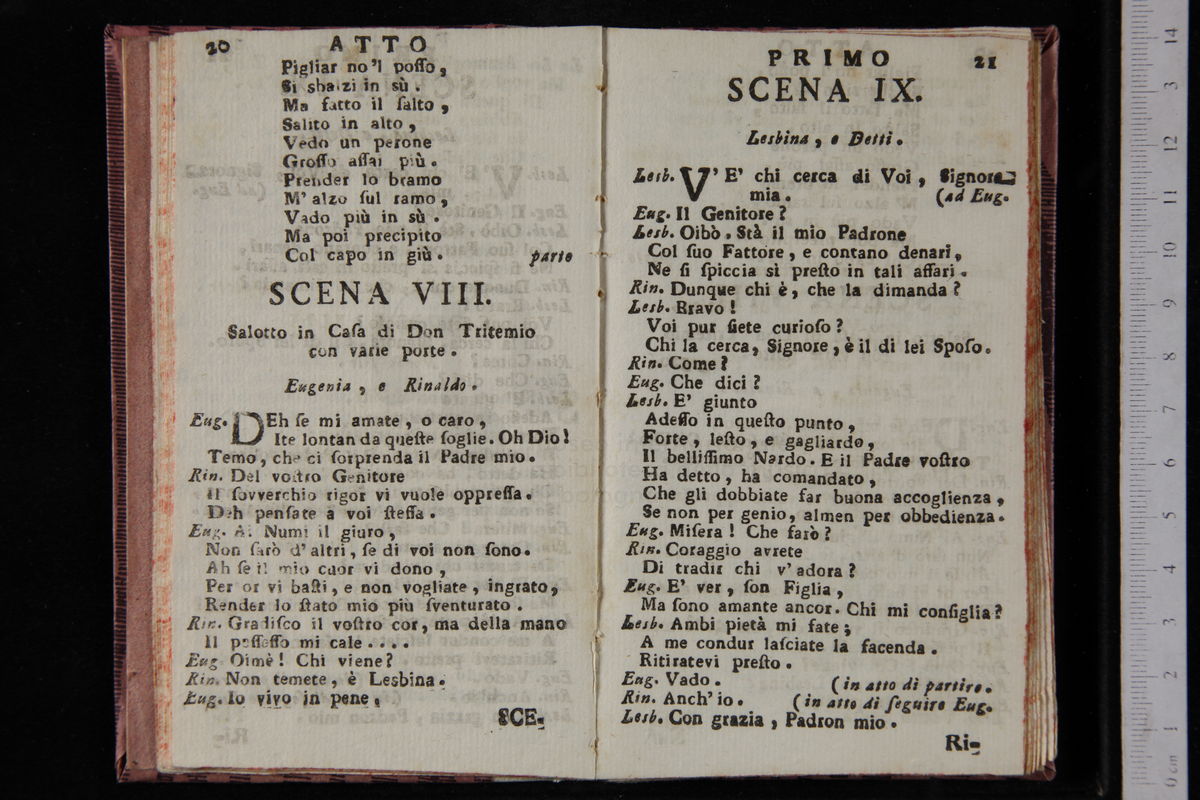 20 ATTO
Pigliar no'l poſſo,
Si sbalzi in sù.
Ma fatto il ſalto,
Salito in alto,
Vedo un perone
Groſſo aſſai più.
Prender lo bramo
M'alzo ſul ramo,
Vado più in sù.
Ma poi precipito
Col capo in giù. parte
SCENA VIII.
Salotto in Caſa di Don Tritemio
con varie porte.
Eugenia, e Rinaldo.
Eug. DEh ſe mi amate, o caro,
Ite lontan da queſte ſoglie. Oh Dio!
Temo, che ci ſorprenda il Padre mio.
Rin. Del voſtro Genitore
Il ſovverchio rigor vi vuole oppreſſa.
Deh penſate a voi ſteſſa.
Eug. Ai Numi il giuro,
Non ſarò d'altri, ſe di voi non ſono.
Ah ſe il mio cuor vi dono,
Per or vi baſti, e non vogliate, ingrato,
Render lo ſtato mio più ſventurato.
Rin. Gradiſco il voſtro cor, ma della mano
Il poſſeſſo mi cale....
Eug Oimè! Chi viene?
Rin. Non temete, è Lesbina.
Eug. Io vivo in pene.
SCE-
PRIMO 21
SCENA IX.
Lesbina, e Detti.
Lesb. V'E' chi cerca di Voi, Signora
mia. (ad Eug.
Eug. Il Genitore?
Lesb. Oibò. Stà il mio Padrone
Col ſuo Fattore, e contano denari,
Ne ſi ſpiccia sì preſto in tali affari.
Rin. Dunque chi è, che la dimanda?
Lesb. Bravo!
Voi pur ſiete curioſo?
Chi la cerca, Signore, è il di lei Spoſo.
Rin. Come?
Eug. Che dici?
Lesb. E' giunto
Adeſſo in queſto punto,
Forte, leſto, e gagliardo,
Il belliſſimo Nardo. E il Padre voſtro
Ha detto, ha comandato,
Che gli dobbiate far buona accoglienza,
Se non per genio, almen per obbedienza.
Eug. Miſera! Che farò?
Rin. Coraggio avrete
Di tradir chi v'adora?
Eug. E' ver, ſon Figlia,
Ma ſono amante ancor. Chi mi conſiglia?
Lesb. Ambi pietà mi fate;
A me condur laſciate la facenda.
Ritiratevi preſto.
Eug. Vado. (in atto di partire.
Rin. Anch'io. (in atto di ſeguire Eug.
Lesb. Con grazia, Padron mio.
Ri-